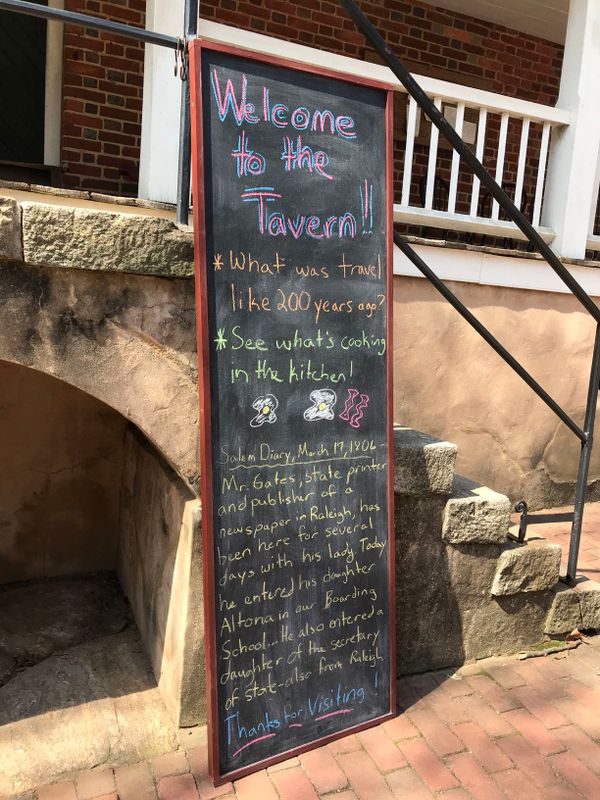 Welcome
to the
Tavern!!
* What was travel
like 200 years ago?
* See what's cooking
in the kitchen!
Salem Diary, March 17, 1806 -
Mr. Gates, state printer
and publisher of a
newspaper in Raleigh, has
been here for several
days with his lady. Today
he entered his daughter
Altona in our Boarding
School... He also entered a
daughter of the secretary
of state - also from Raleigh
Thanks for Visiting!